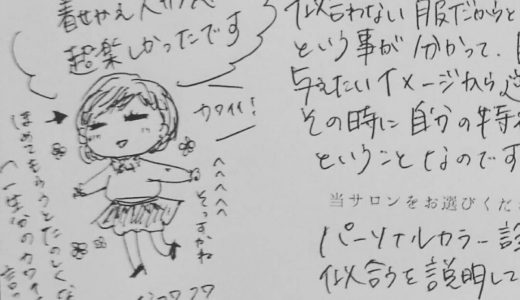 着せかえ人形みたいで
超楽しかったです
カワイイ!
へへへへへ
そっすかね
ほめてもらうとたのしくな
へ一生分のカワイイ言
似合わない服だからと
という事が分かって、
与えたいイメージから
その時に自分の特
ということなのです
当サロンをお選びくだ
パーソナルカラー診
似合うを説明して